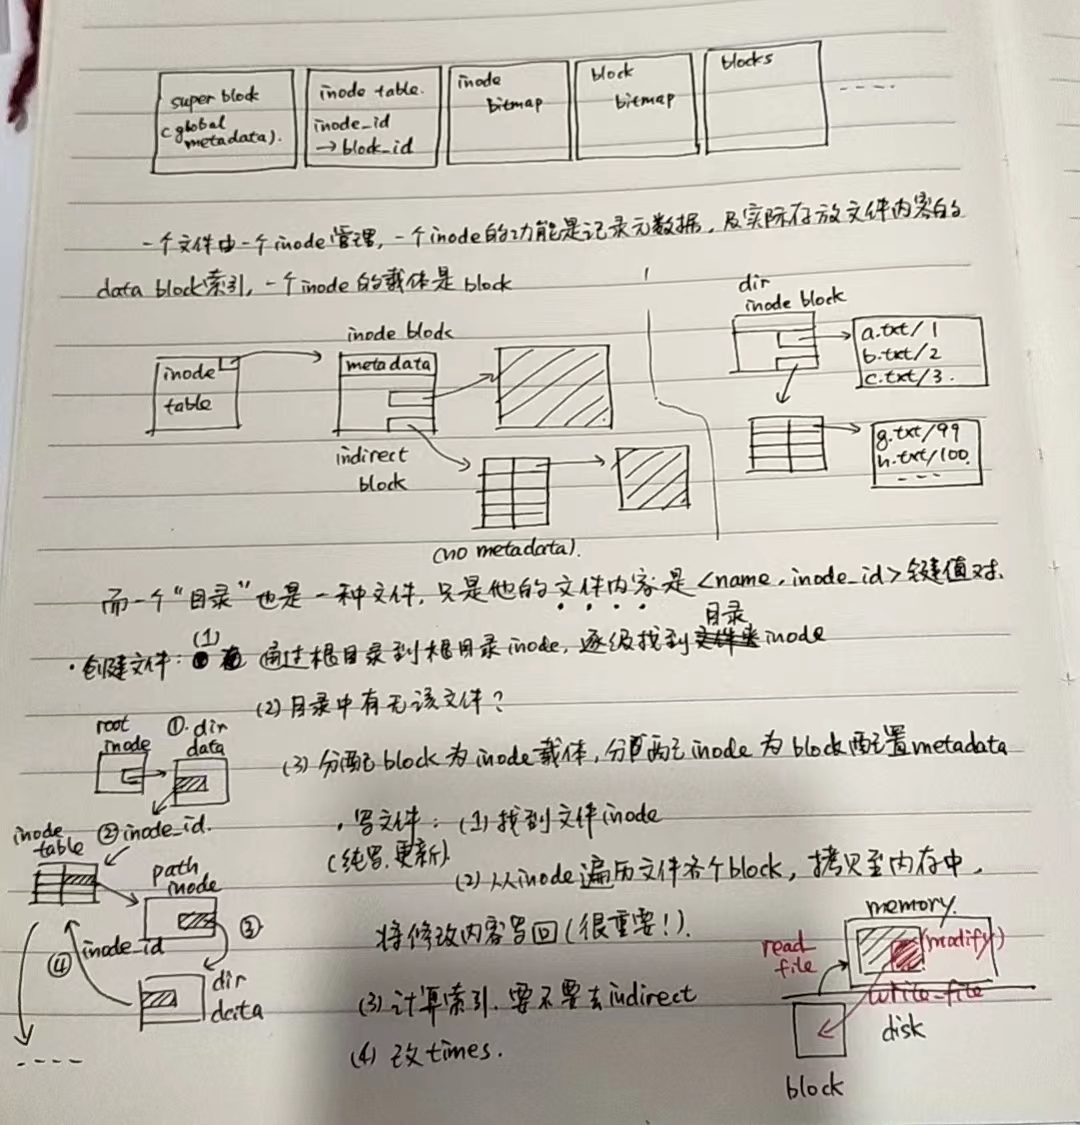 super block
(global
metadata).
inode table.
inode_id
→block_id
inode
bitmap
block
bitmap
blocks
....
一个文件由一个inode管理, 一个inode的功能是记录元数据, 及实际存放文件内容的
data block索引, 一个inode的载体是block
inode
table
inode block
metadata
indirect
block
(no metadata).
dir
inode block
a.txt/1
b.txt/2
c.txt/3.
g.txt/99
h.txt/100.
---
而一个"目录"也是一种文件, 只是他的文件内容是<name, inode_id>键值对.
·创建文件: (1) 通过根目录到根目录inode, 逐级找到目录inode
(2)目录中有无该文件?
(3)分配block为inode载体, 分配inode为block配置metadata
root
inode
①. dir
data
②inode_id.
inode
table
path
inode
③
④
inode_id
dir
data
----
·写文件: (1)找到文件inode
(纯写, 更新)
(2)从inode遍历文件各个block, 拷贝至内存中,
将修改内容写回(很重要!).
(3)计算索引. 要不要去indirect
(4)改times.
memory.
read
file
(modify)
write-file
disk
block